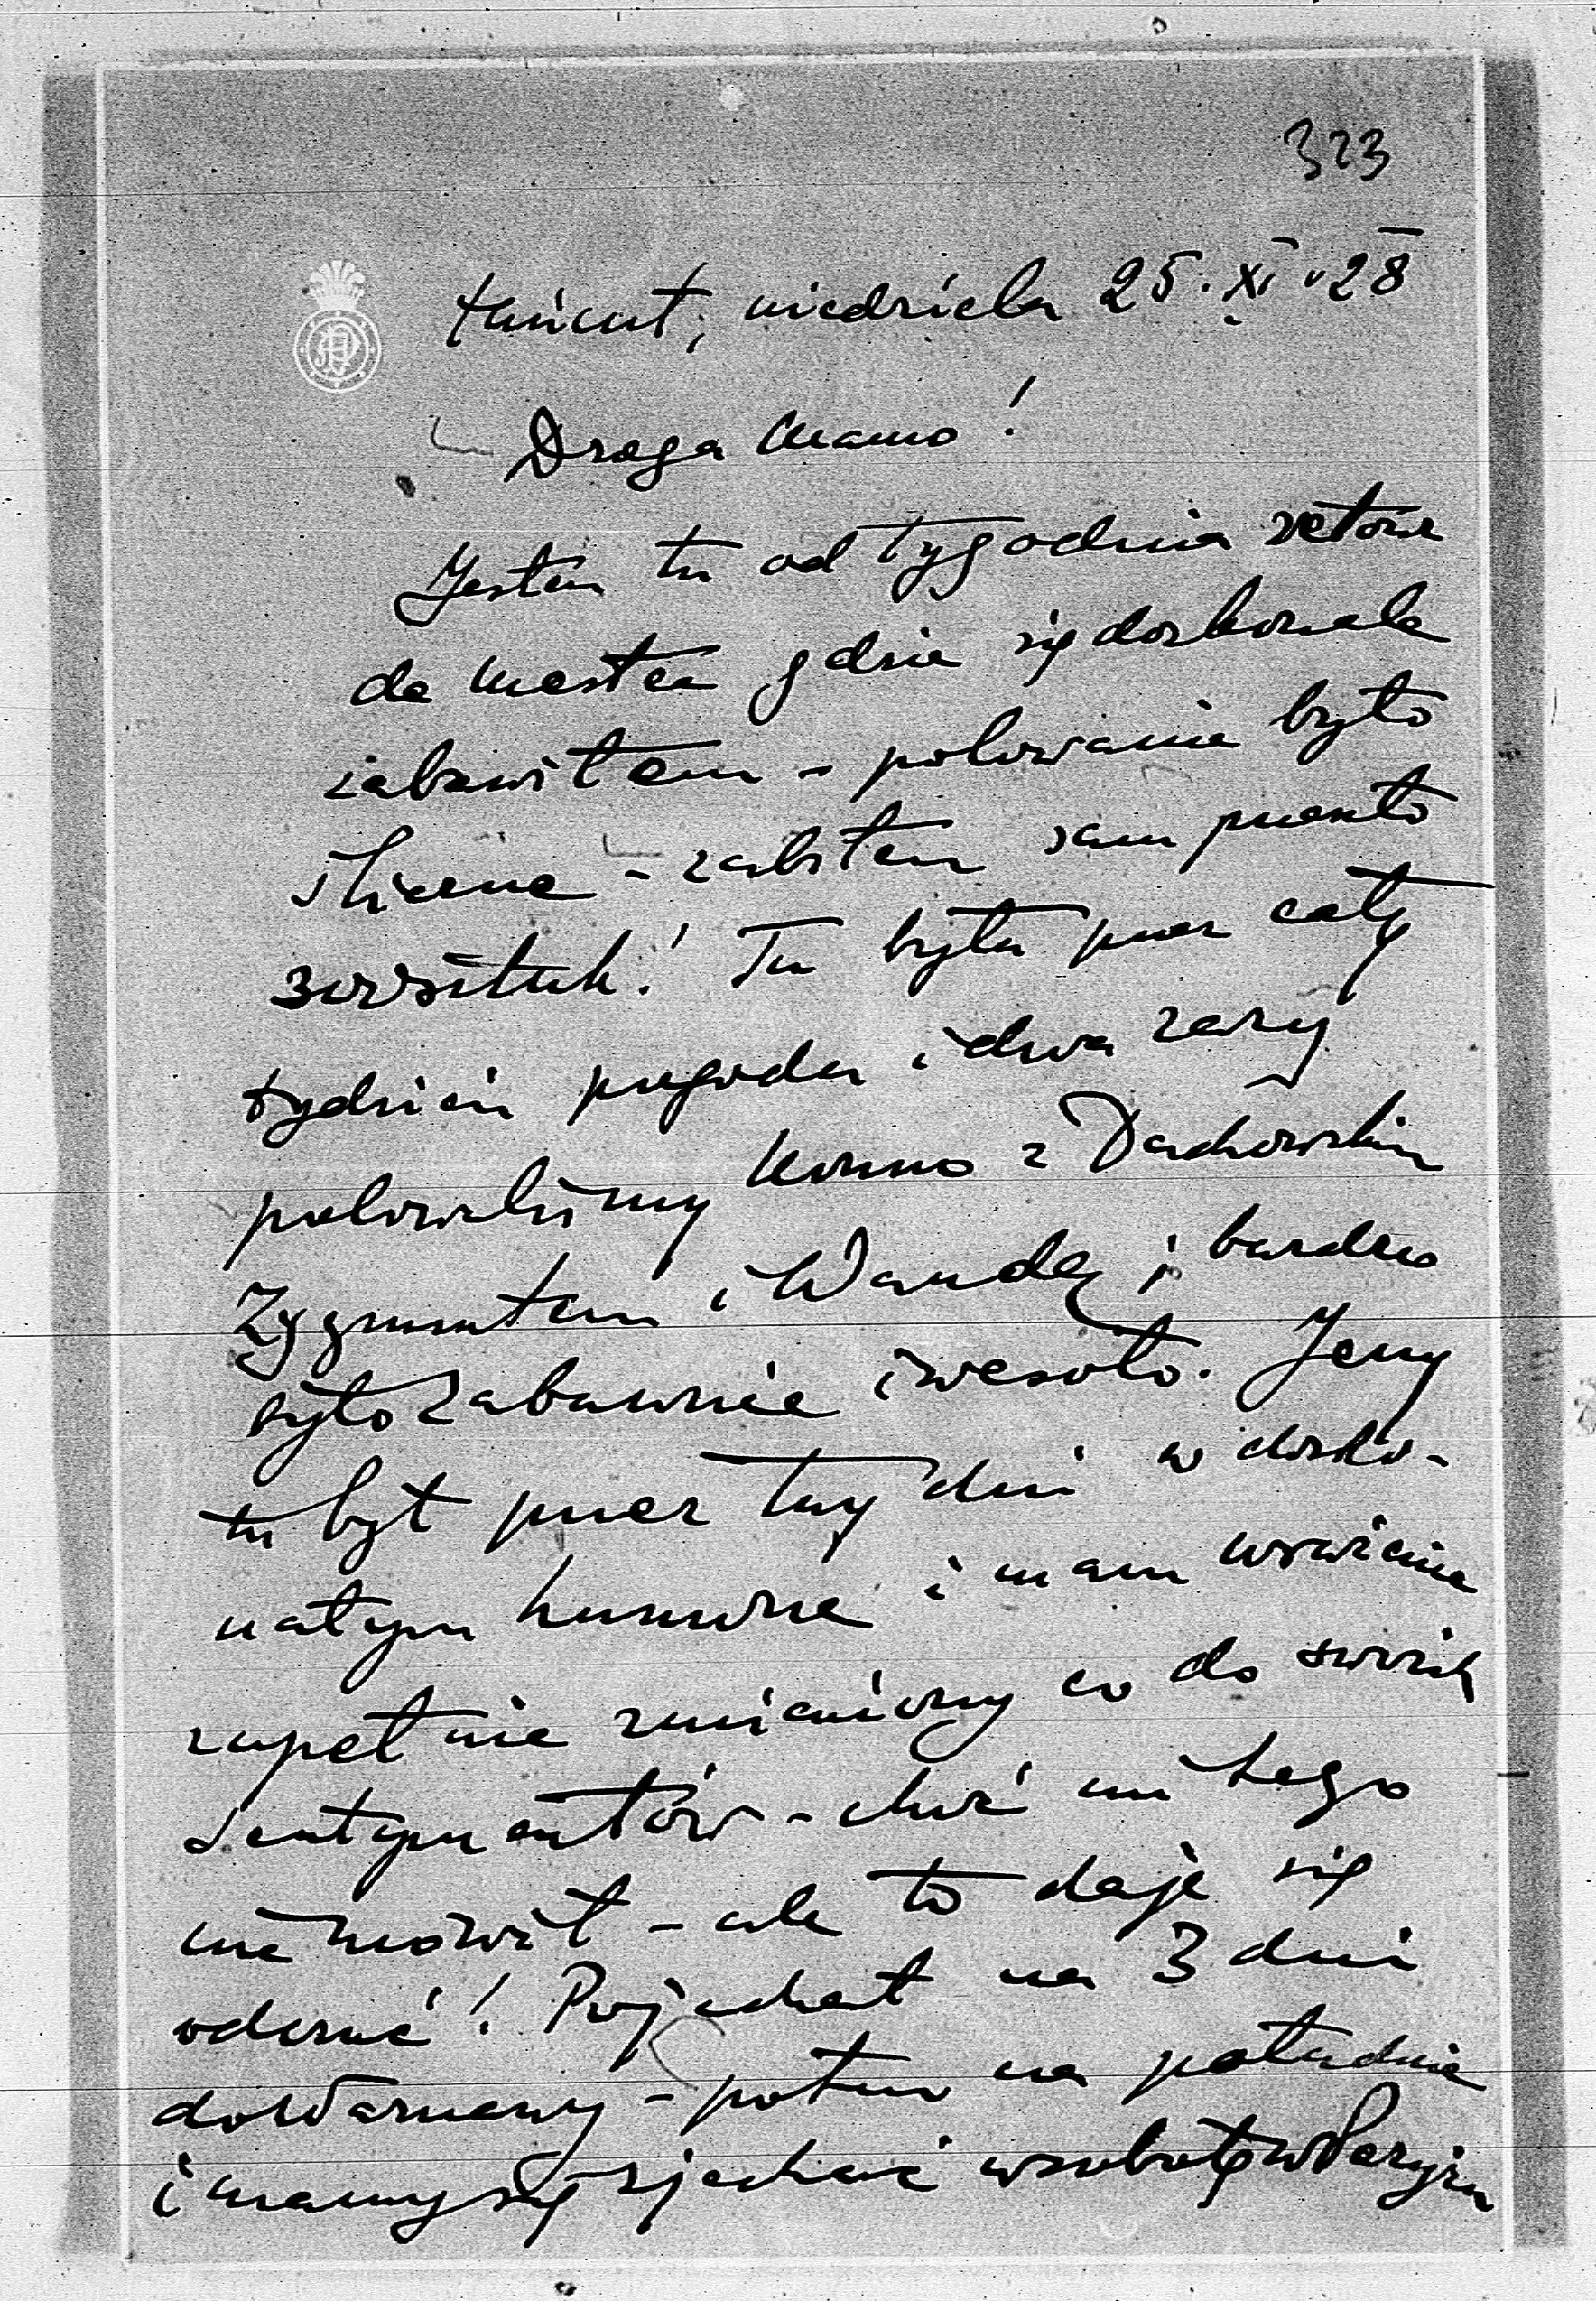 323
Łańcut, niedziela 25. XI. 28
Droga Mamo!
Jestem tu od tygodnia
do gdzie się doskonale
zabawiłem – polowanie było
śliczne – zabiłem sam przeszło
300 sztuk! Tu była przez cały
tydzień pogoda i dwa razy
polowaliśmy konno z Dachowskim
Zygmuntem i Wandą i bardzo
było zabawnie i wesoło. Jerzy
tu był przez trzy dni w dosko-
nałym humorze i mam wrażenie
zupełnie zmieniony co do swoich
sentymentów – choć mi tego
nie mówił – ale to daje się
odczuć! Pojechał na 3 dni
do Warszawy – potem na południe
i mamy się zjechać w sobotę w Paryżu